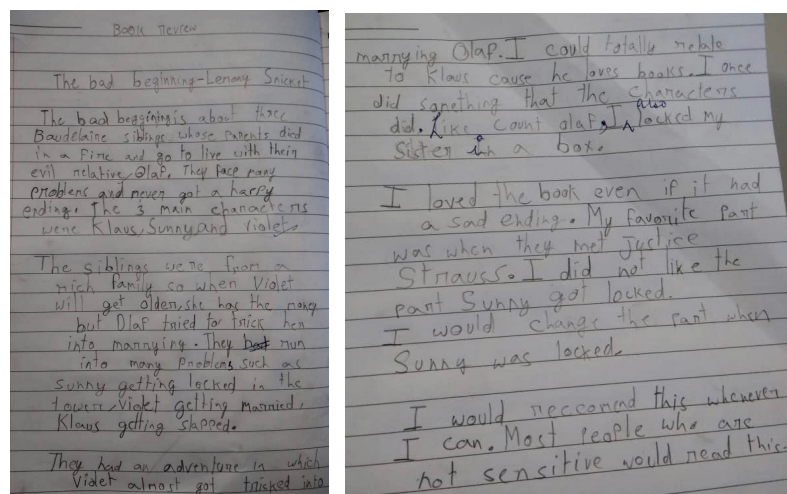 Book review
The bad beginning-Lemony Snicket
The bad beggining is about three
Baudelaire siblings whose parents died
in a fire and go to live with their
evil relative, Olaf. They face many
problems and never got a happy
ending. The 3 main characters
were Klaus, Sunny and Violet.
The siblings were from a
rich family so when Violet
will get older, she has the money
but Olaf tried to trick her
into marrying. They run
into many problems such as
Sunny getting locked in the
tower, Violet getting married,
Klaus getting slapped.
They had an adventure in which
Violet almost got tricked into
marrying Olaf. I could totally relate
to Klaus cause he loves books. I once
did something that the characters
did. Like Count Olaf, I also locked my
sister in a box.
I loved the book even if it had
a sad ending. My favorite part
was when they met Justice
Strauss. I did not like the
part Sunny got locked.
I would change the part when
Sunny was locked.
I would reccomend this whenever
I can. Most people who are
not sensitive would read this.